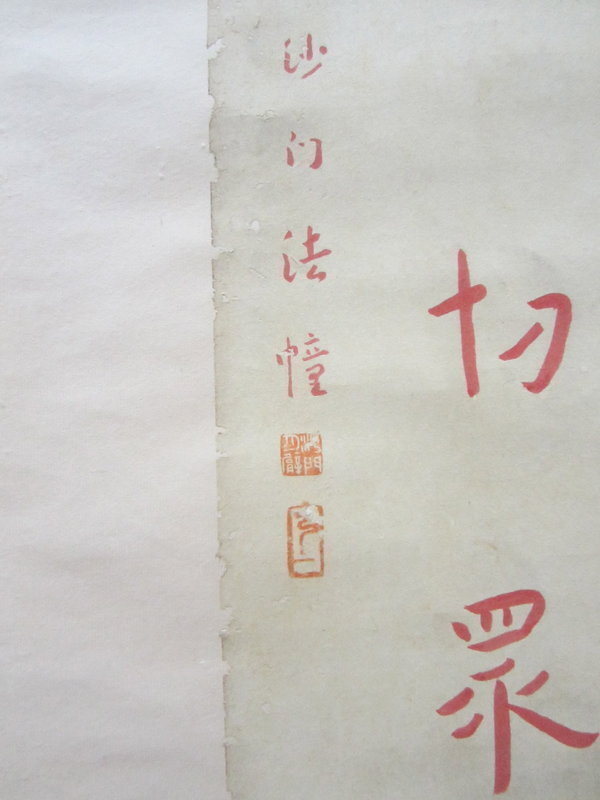 切眾
沙门法幢